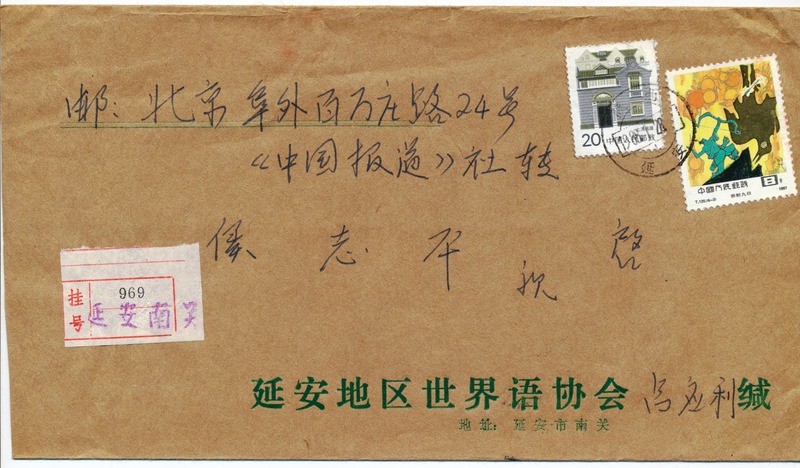 邮:北京阜外百万庄路24号
《中国报道》社转
侯志平 亲启
20
中国人民邮政
中国人民邮政 8分
T.120.(6-3) 1987
延安
挂号
969
延安南关
延安地区世界语协会 利缄
地址:延安市南关